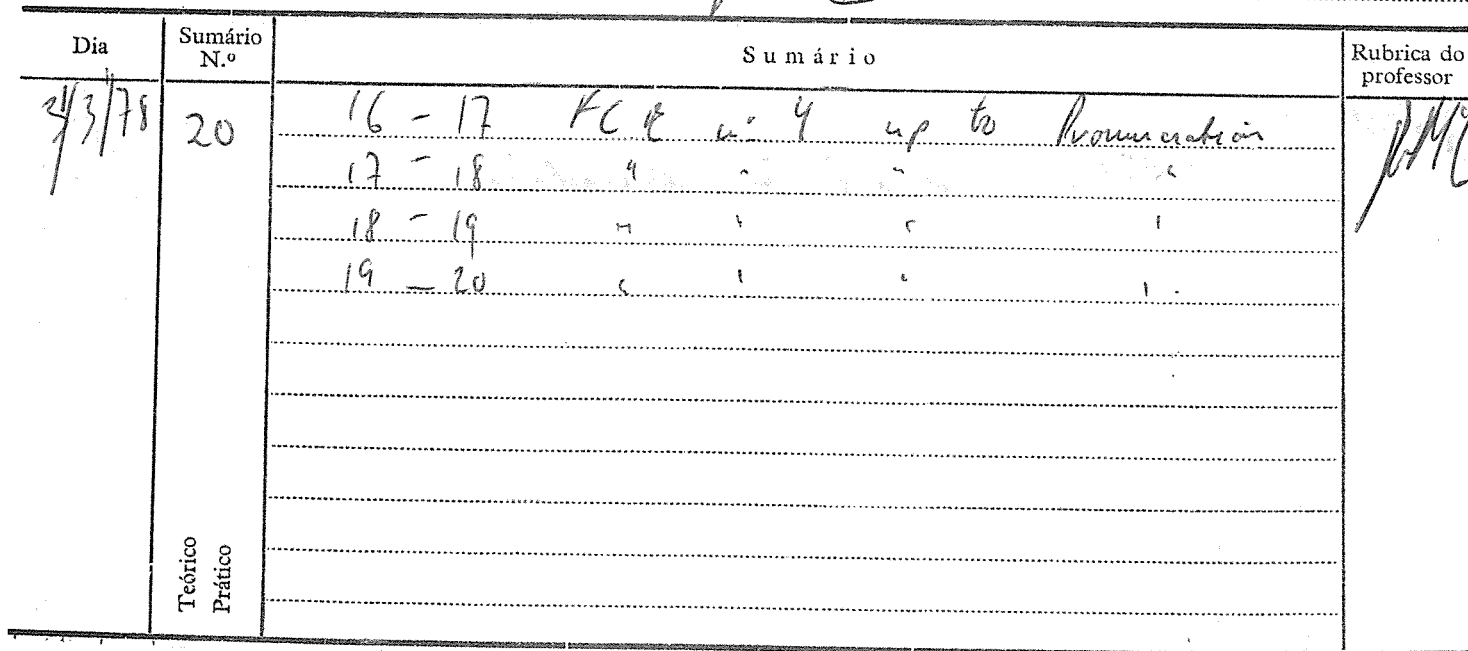 Dia
Sumário N.º
Sumário
Rubrica do professor
/3/78
20
16 - 17 FCE 4 up to Pronunciation
17 - 18 " " " "
18 - 19 " " " "
19 - 20 " " " "
Teórico
Prático